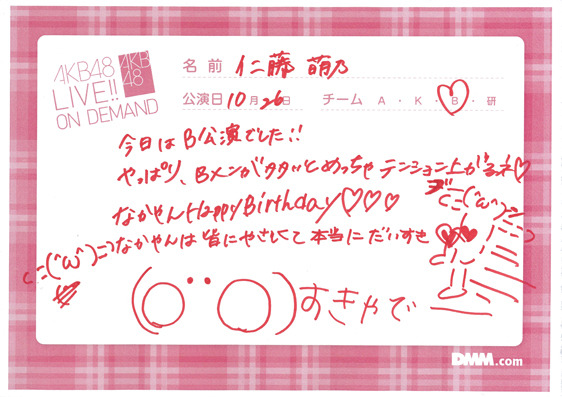 AKB48
LIVE!!
ON DEMAND
AKB
48
名前 仁藤 萌乃
公演日 10月26日 チーム A・K・B・研
今日はB公演でした!!
やっぱり、Bメンが めっちゃテンション上がるネ♡
なかやんHappyBirthday♡♡♡
(^ω^)
なかやんは皆にやさしくて本当にだいすき
(^ω^)
すきやで
DMM.com